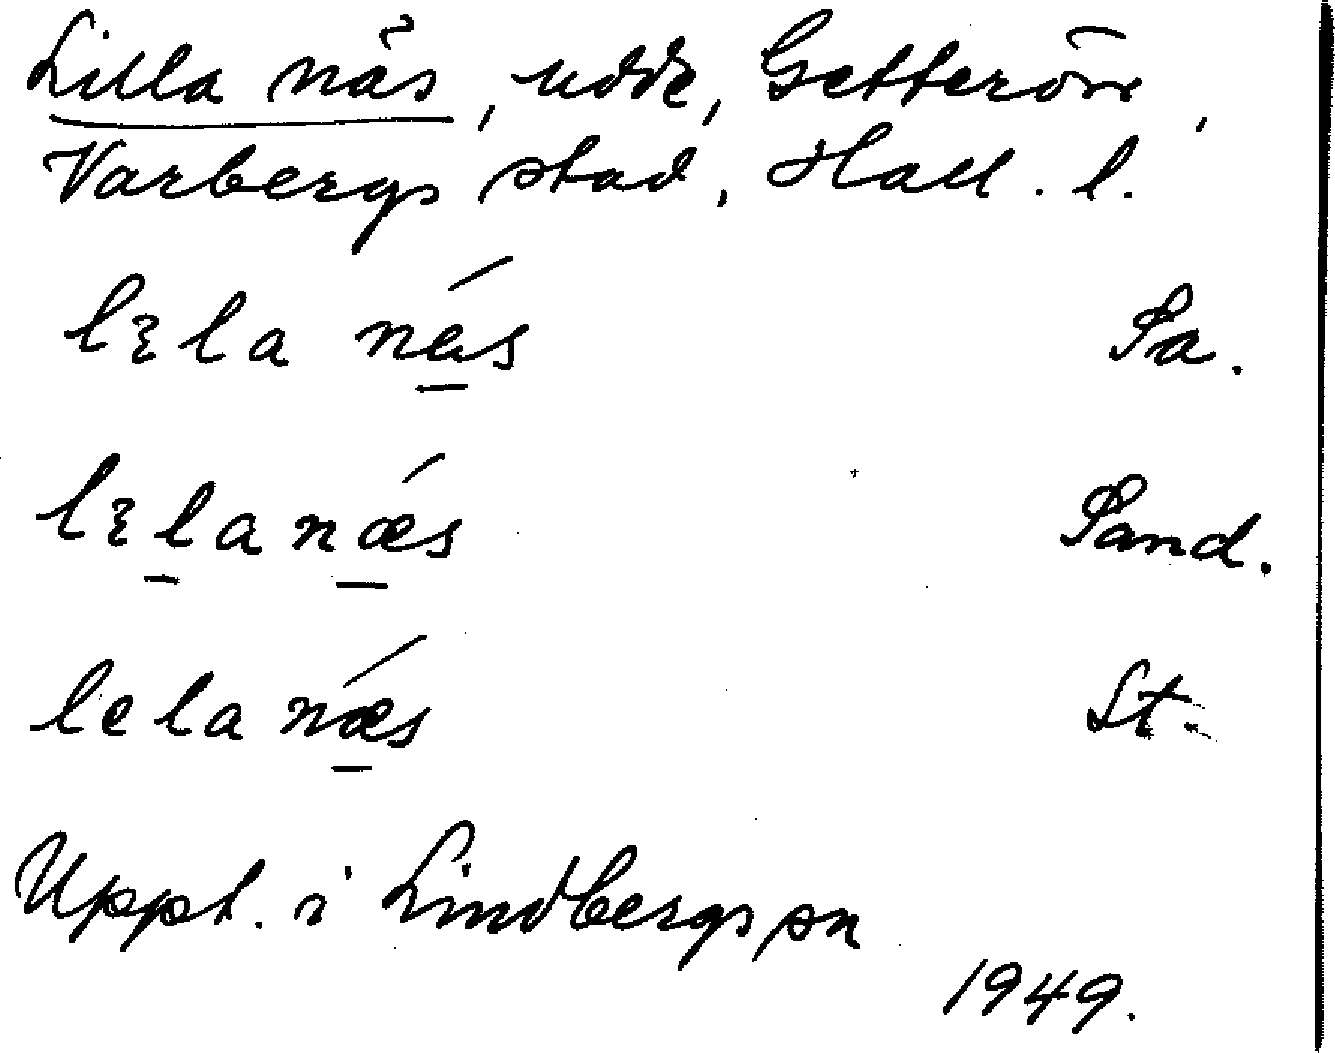 Lilla näs, udde, Getterön,
Varbergs stad, Hall. l.
lɛla næ´s Sa.
lɛlanæ´s Sand.
lelanæ´s St.
Uppt. i Lindbergs sn
1949.